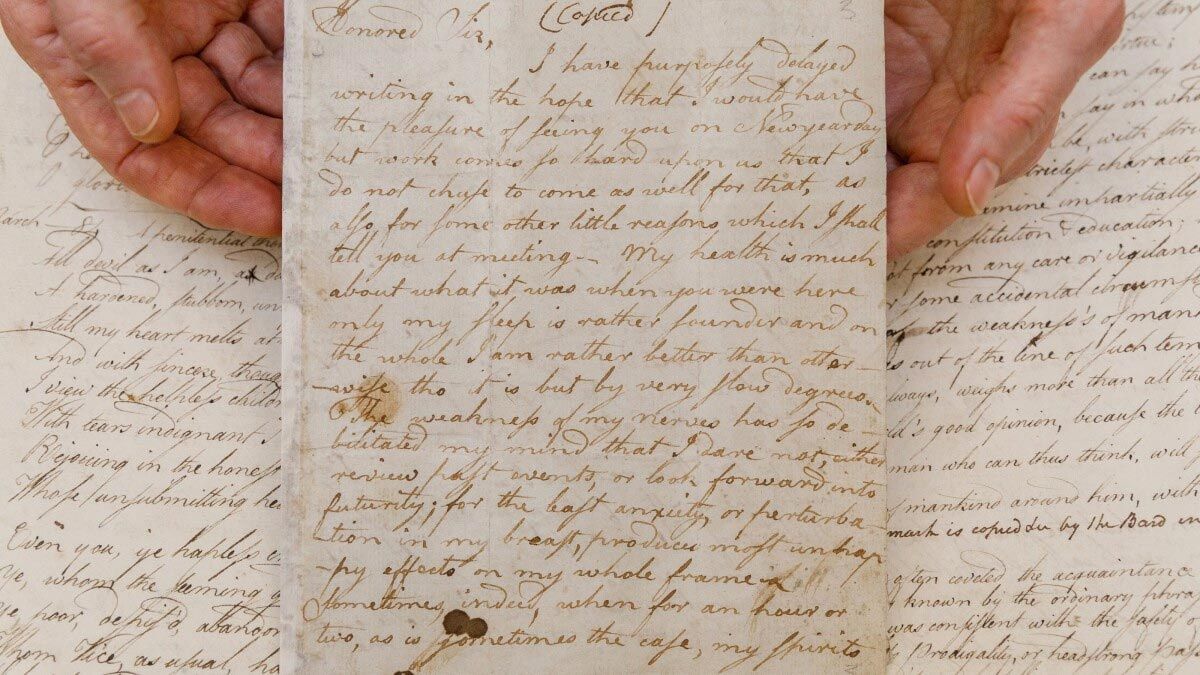 (Copied)
Honored Sir,
I have purposely delayed
writing in the hope that I would have
the pleasure of seeing you on Newyearday
but work comes so hard upon us that I
do not chuse to come as well for that, as
also, for some other little reasons which I shall
tell you at meeting — My health is much
about what it was when you were here
only my sleep is rather sounder and on
the whole I am rather better than other-
-wise tho it is but by very slow degrees.
The weakness of my nerves has so de-
bilitated my mind that I dare not, either
review past events, or look forward into
futurity; for the least anxiety, or perturba-
-tion in my breast, produces most unhap
-py effects on my whole frame
Sometimes, indeed, when for an hour or
two, as is sometimes the case, my spirits
glori
March — 84 A penitential
All devil as I am, a
A hardened, stubborn, un
Still my heart melts at
And with sincere, thoug
I view the helpless childr
With tears indignant I
Rejoicing in the honest
Whose unsubmitting he
Even you, ye hapless
Ye, whom the seeming
Ye poor, despis'd, abandon
Whom Vice, as usual, ha
can say h
say in who
be, with stri
strictest character
examine impartially
constitution & education;
not from any care or vigilance
some accidental circumst
the weakness's of man
out of the line of such tem
always, weighs more than all th
d's good opinion, because the
man who can thus think, will
mankind around him, with
mark is copied by the Bard in
often coveted the acquaintance
known by the ordinary phra
was consistent with the safety o
Prodigality, or headstrong